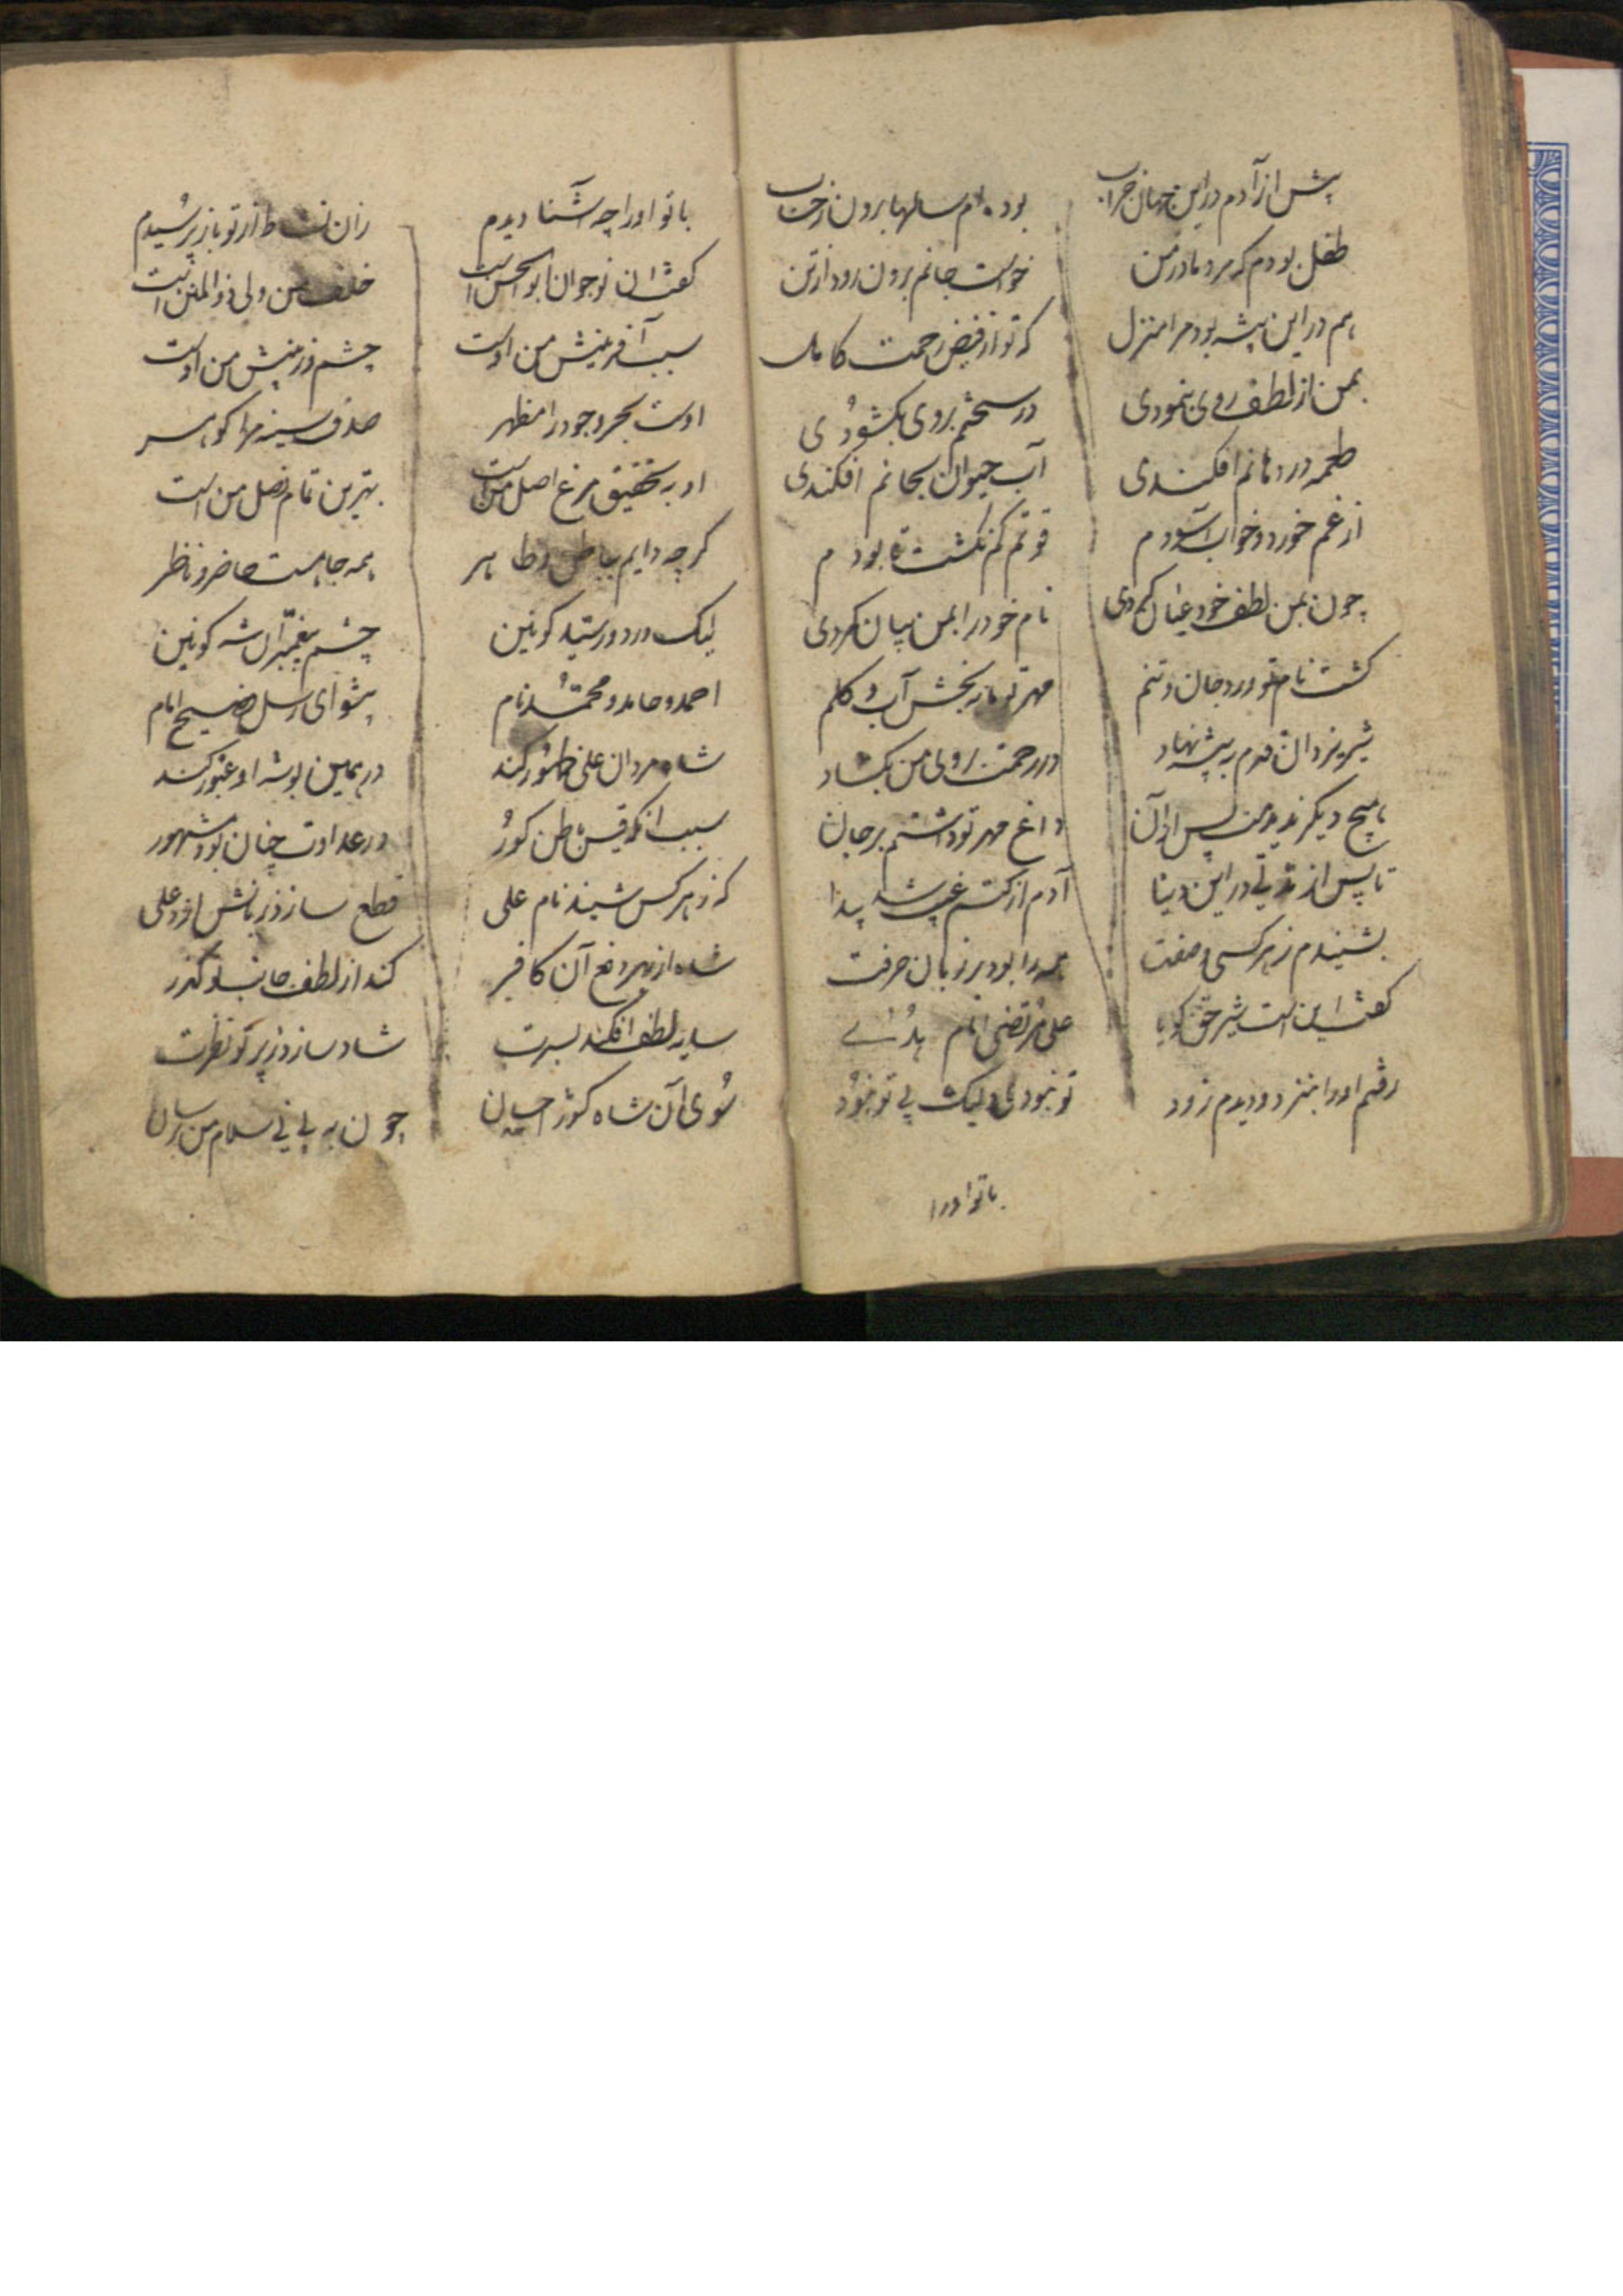 پیش از آدم در این جهان خراب بوده ام سالها برون ز حساب
طفل بودم که مرد مادر من خواست جانم برون رود از تن
هم در این بیشه بود مرا منزل که تو از فیض رحمت کامل
بمن از لطف روی بنمودی در سخنم بروی بکشودی
طعمه در دهانم افکندی آب حیوان بجانم افکندی
از غم خورد و خواب آسودم قوتم کم نکشت تا بودم
چون بمن لطف خود عیان کردی نام خود را بمن بیان کردی
کشت نام تو ورد جان و تنم مهر تو مایه بخش آب و کلم
شیر یزدان قدم به بیشه نهاد در رحمت بروی من بکشاد
هیچ دیکر ندیدمت پس از آن داغ مهر تو داشتم بر جان
تا پس از مدتی در این دنیا آدم از کتم غیب شد پیدا
بشنیدم ز هر کسی وصفت همه را بود بر زبان حرفت
کفت این است شیر حق کویا علی مرتضی امام هدی
رفتم او را بنزد و دیدم زود تو نبودی ولیک بی تو نبود
با تو او را
با تو او را چه آشنا دیدم زان نشاط از تو باز پرسیدم
کفت این نوجوان ابوالحسن است خلف من ولی ذوالمنن است
سبب آفرینش من اوست چشم و زبینش من اوست
اوست بحر وجود را مظهر صدف سینه مرا کوهر
او به تحقیق فرع اصل من است بهترین تمام فصل من است
کرچه دایم بباطن و ظاهر همه جا هست حاضر و ناظر
لیک در دور سید کونین چشم پیغمبران شه کونین
احمد و حامد و محمد نام پیشوای رسل فصیح امام
شاه مردان علی ظهور کند در همین بیشه او عبور کند
سبب آنکه قیس باطن کور در عداوت چنان بود مشهور
که ز هر کس شنید نام علی قطع سازد زبانش از دغلی
شاه از بهر دفع آن کافر کند از لطف جانب تو کذر
سایه لطف افکند بسرت شاد سازد ز پرتو نظرت
سوی آن شاه کوثر احسان چون به بینی سلام من برسان